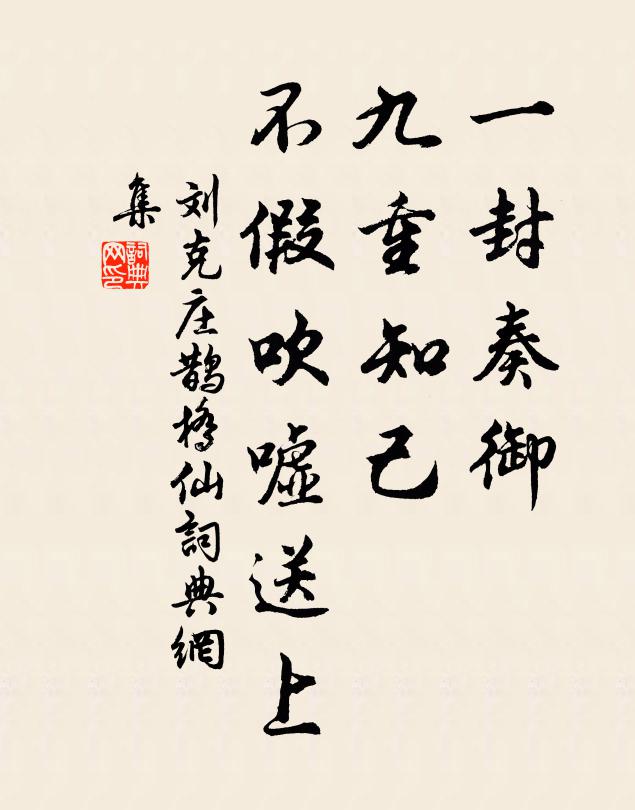 一封奏御
九重知己
不假吹噓送上
刘克庄鵲橋仙詞典網
集
詞典网印